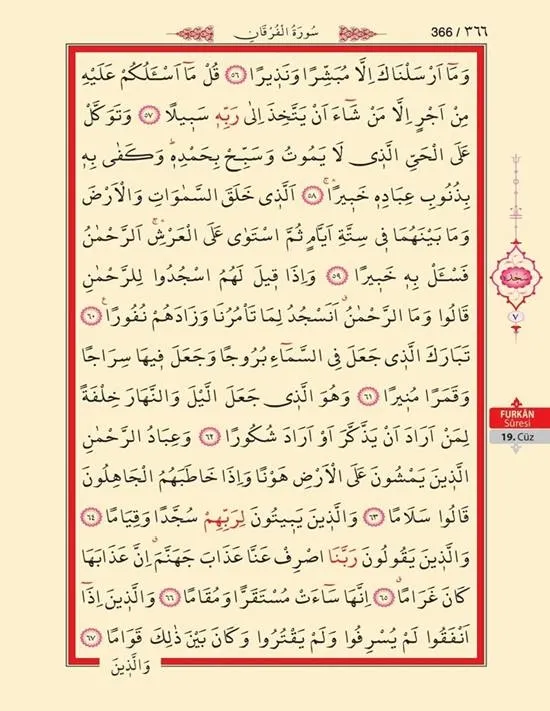 سُورَةُ الْفُرْقَانِ
366 / ٣٦٦
وَمَٓا اَرْسَلْنَاكَ اِلَّا مُبَشِّرًا وَنَذ۪يرًا ﴿٥٦﴾ قُلْ مَٓا اَسْـَٔلُكُمْ عَلَيْهِ
مِنْ اَجْرٍ اِلَّا مَنْ شَٓاءَ اَنْ يَتَّخِذَ اِلٰى رَبِّه۪ سَب۪يلًا ﴿٥٧﴾ وَتَوَكَّلْ
عَلَى الْحَيِّ الَّذ۪ي لَا يَمُوتُ وَسَبِّحْ بِحَمْدِه۪ۜ وَكَفٰى بِه۪
بِذُنُوبِ عِبَادِه۪ خَب۪يرًاۚۛ ﴿٥٨﴾ اَلَّذ۪ي خَلَقَ السَّمٰوَاتِ وَالْاَرْضَ
وَمَا بَيْنَهُمَا ف۪ي سِتَّةِ اَيَّامٍ ثُمَّ اسْتَوٰى عَلَى الْعَرْشِۚۛ اَلرَّحْمٰنُ
فَسْـَٔلْ بِه۪ خَب۪يرًا ﴿٥٩﴾ وَاِذَا ق۪يلَ لَهُمُ اسْجُدُوا لِلرَّحْمٰنِ
قَالُوا وَمَا الرَّحْمٰنُ اَنَسْجُدُ لِمَا تَأْمُرُنَا وَزَادَهُمْ نُفُورًا ﴿٦٠﴾
تَبَارَكَ الَّذ۪ي جَعَلَ فِي السَّمَٓاءِ بُرُوجًا وَجَعَلَ ف۪يهَا سِرَاجًا
وَقَمَرًا مُن۪يرًا ﴿٦١﴾ وَهُوَ الَّذ۪ي جَعَلَ الَّيْلَ وَالنَّهَارَ خِلْفَةً
لِمَنْ اَرَادَ اَنْ يَذَّكَّرَ اَوْ اَرَادَ شُكُورًا ﴿٦٢﴾ وَعِبَادُ الرَّحْمٰنِ
الَّذ۪ينَ يَمْشُونَ عَلَى الْاَرْضِ هَوْنًا وَاِذَا خَاطَبَهُمُ الْجَاهِلُونَ
قَالُوا سَلَامًا ﴿٦٣﴾ وَالَّذ۪ينَ يَب۪يتُونَ لِرَبِّهِمْ سُجَّدًا وَقِيَامًا ﴿٦٤﴾
وَالَّذ۪ينَ يَقُولُونَ رَبَّنَا اصْرِفْ عَنَّا عَذَابَ جَهَنَّمَۗ اِنَّ عَذَابَهَا
كَانَ غَرَامًاۗ ﴿٦٥﴾ اِنَّهَا سَٓاءَتْ مُسْتَقَرًّا وَمُقَامًا ﴿٦٦﴾ وَالَّذ۪ينَ اِذَٓا
اَنْفَقُوا لَمْ يُسْرِفُوا وَلَمْ يَقْتُرُوا وَكَانَ بَيْنَ ذٰلِكَ قَوَامًا ﴿٦٧﴾
وَالَّذ۪ينَ
سجده
٧
FURKÂN
Sûresi
19. Cüz